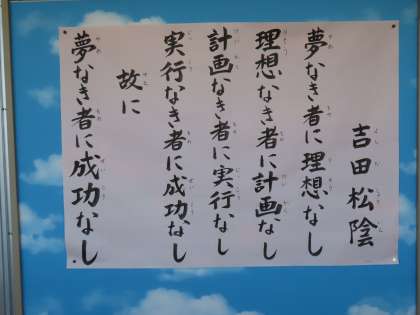 吉田松陰
夢なき者に理想なし
理想なき者に計画なし
計画なき者に実行なし
実行なき者に成功なし
故に
夢なき者に成功なし